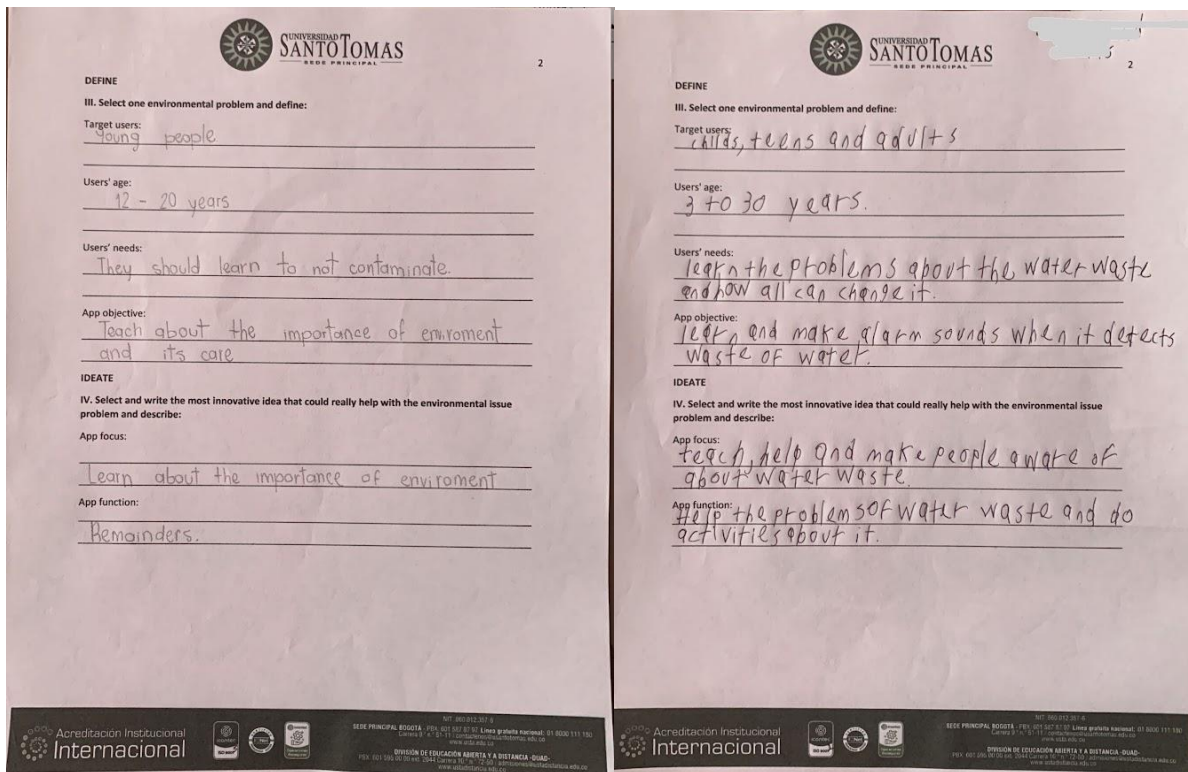 UNIVERSIDAD
SANTO TOMAS
SEDE PRINCIPAL
2
DEFINE
III. Select one environmental problem and define:
Target users:
Young people
Users' age:
12 - 20 years
Users' needs:
They should learn to not contaminate.
App objective:
Teach about the importance of enviroment
and its care
IDEATE
IV. Select and write the most innovative idea that could really help with the environmental issue
problem and describe:
App focus:
Learn about the importance of enviroment
App function:
Remainders.
Acreditación Institucional
Internacional
SEDE PRINCIPAL BOGOTÁ
Línea gratuita nacional: 01 8000 111 180
DIVISIÓN DE EDUCACIÓN ABIERTA Y A DISTANCIA -DUAD-
UNIVERSIDAD
SANTO TOMAS
SEDE PRINCIPAL
2
DEFINE
III. Select one environmental problem and define:
Target users:
childs, teens and adults
Users' age:
3 to 30 years.
Users' needs:
learn the problems about the water waste
and how all can change it.
App objective:
learn and make alarm sounds when it detects
waste of water.
IDEATE
IV. Select and write the most innovative idea that could really help with the environmental issue
problem and describe:
App focus:
teach, help and make people aware of
about water waste.
App function:
Help the problems of water waste and do
activities about it.
Acreditación Institucional
Internacional
SEDE PRINCIPAL BOGOTÁ
Línea gratuita nacional: 01 8000 111 180
DIVISIÓN DE EDUCACIÓN ABIERTA Y A DISTANCIA -DUAD-